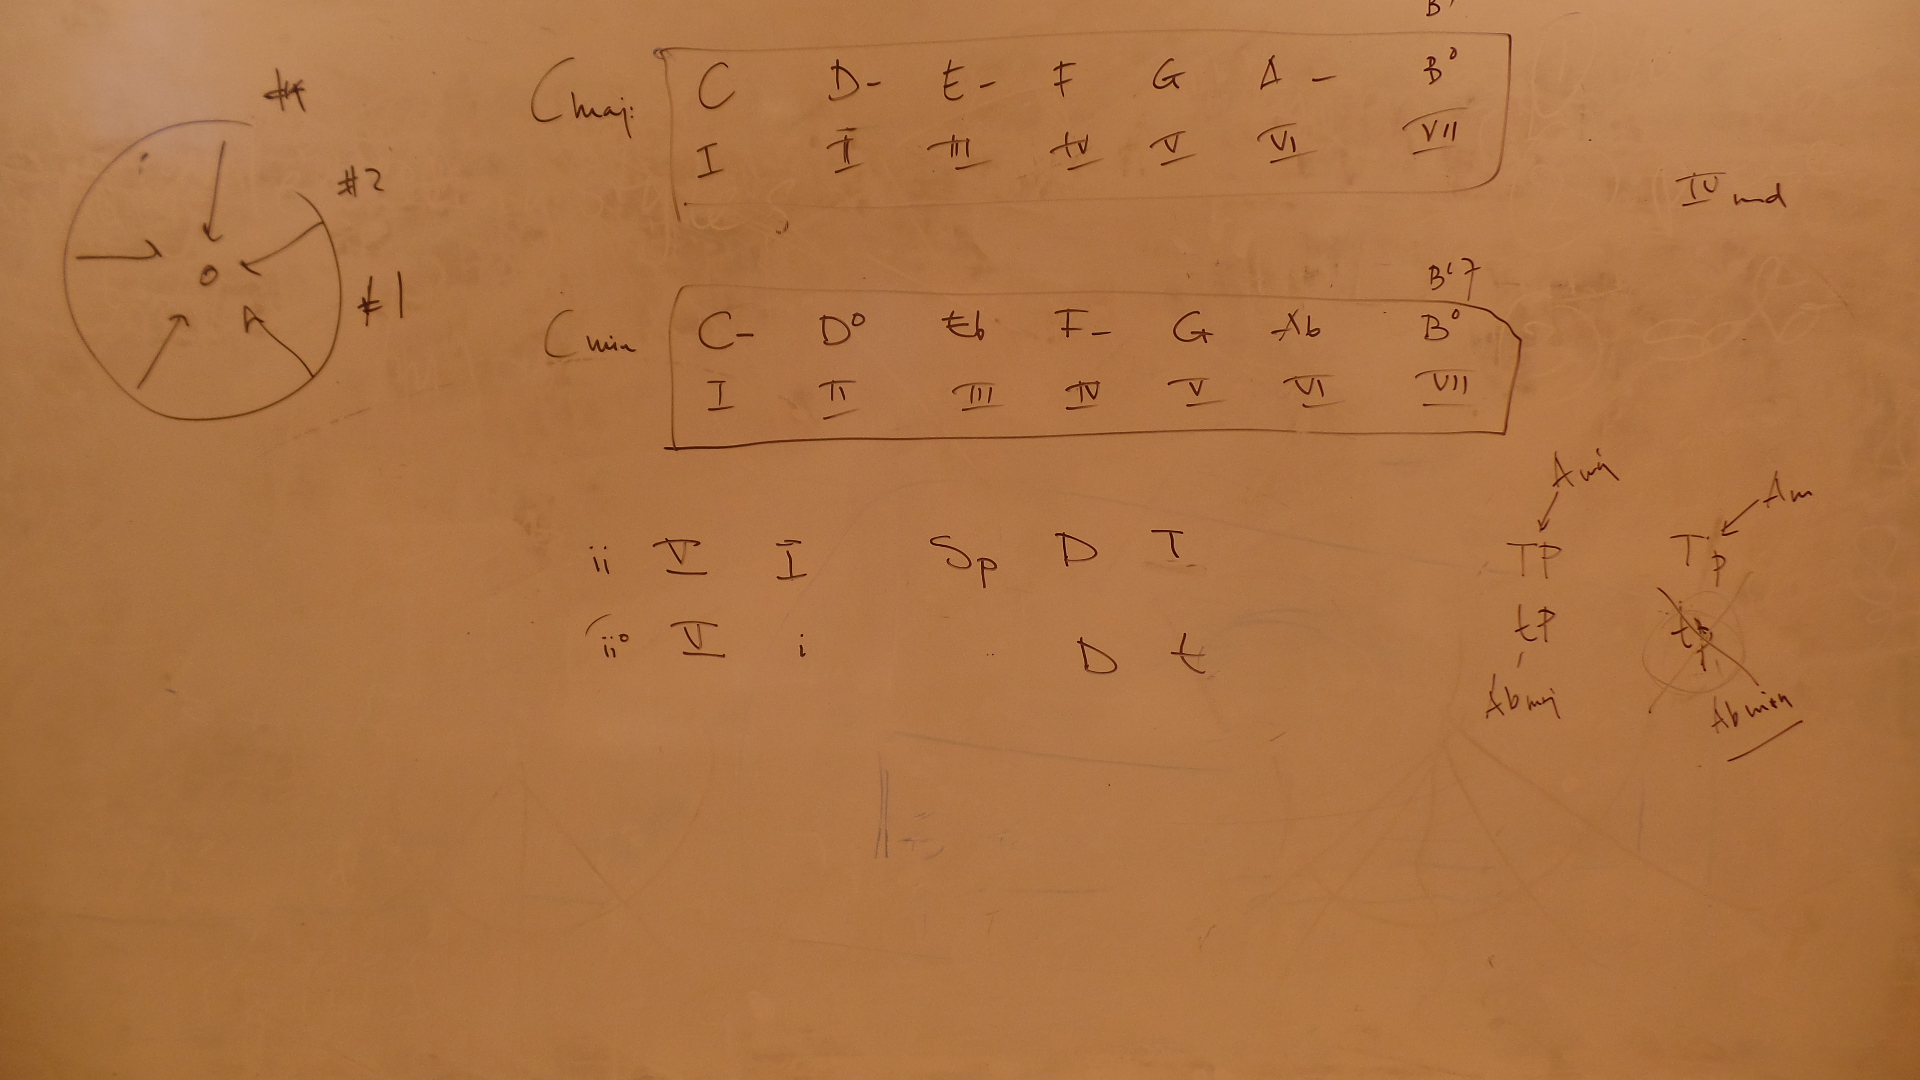 Cmaj: C D- E- F G A- B°
I II III IV V VI VII
#1
#2
IV
B°7
Cmin C- D° Eb F- G Ab B°
I II III IV V VI VII
Amaj
Am
ii V I Sp D T TP Tp
ii° V i D t tP tp
Abmaj
Abmin